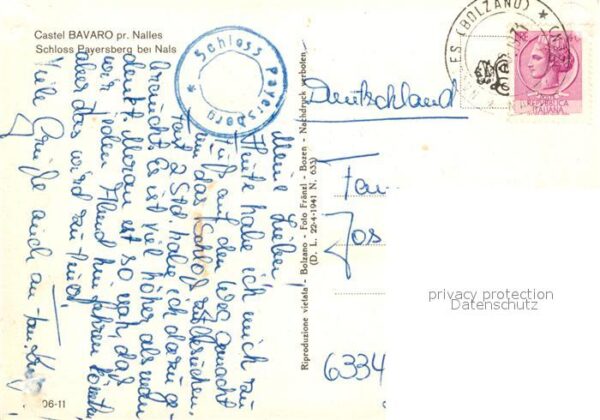 Castel BAVARO pr. Nalles
Schloss Payersberg bei Nals
Schloss Payersberg *
ES (BOLZANO) *
REPVBBLICA
ITALIANA
Deutschland
Fam.
Jos
6334
privacy protection
Datenschutz
Riproduzione vietata - Bolzano - Foto Fränzl - Bozen - Nachdruck verboten
(D. L. 22-4-1941 N. 633)
Meine Lieben!
Heute habe ich mich zu
Fuß auf den Weg gemacht
um das Schloß zu besuchen.
Fast 2 Std. habe ich dazu ge-
braucht. Es ist viel höher als man
denkt. Meran ist so nah, daß
wir jeden Abend hinfahren könnten
aber das wird zu
Viele Grüße auch an Fam.
06-11